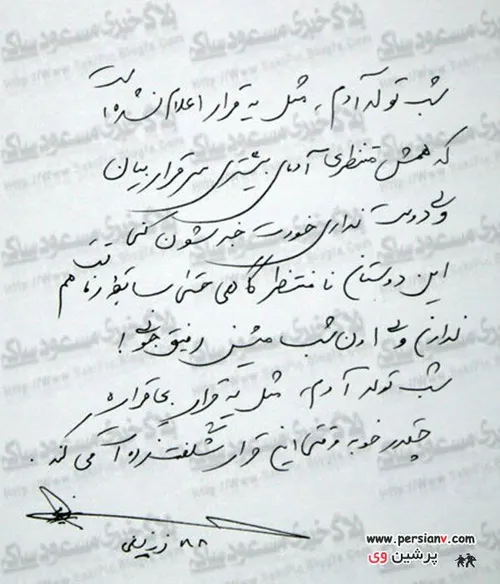 شب تولد آدم، مثل یه قرار اعلام نشده است
که همش منتظری آدمای بیشتری سر قرار بیان
ولی دوست نداری خودت خبرشون کنی
این دوستان نا منتظر گاهی حتی سابقه رفاقتت هم
ندارن ولی اون شب میشن رفیق جونی!
شب تولد آدم، مثل یه قرار
چقدر خوبه وقتی این قرار شگفت زده ات می کند.
۸۸
www.persianv.com
پرشین وی